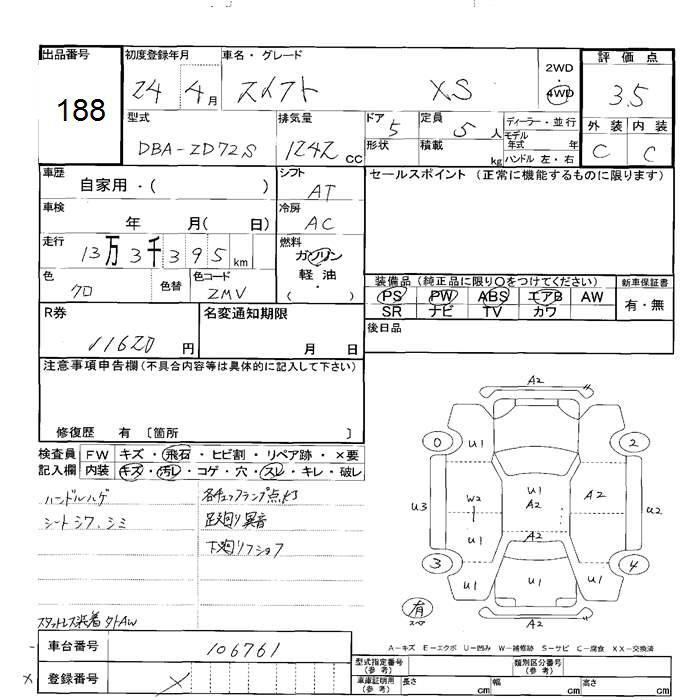 出品番号
188
初度登録年月
24 4月
車名・グレード
スイフト XS
2WD
4WD
評価点
3.5
型式
DBA-ZD72S
排気量
1242 cc
ドア 5
形状
定員 5 人
積載 kg
ディーラー・並行
モデル年式 年
ハンドル 左・右
外装 内装
C C
車歴
自家用・( )
シフト
AT
セールスポイント (正常に機能するものに限ります)
車検
年 月( 日)
冷房
AC
走行
13万3千395km
燃料
ガソリン
軽油
( ・ )
色
クロ
色替
色コード
ZMV
装備品 (純正品に限り○をつけてください)
PS PW ABS エアB AW
SR ナビ TV カワ
新車保証書
有・無
R券
11620 円
名変通知期限
月 日
後日品
注意事項申告欄(不具合内容等は具体的に記入して下さい)
修復歴 有 〔箇所 〕
検査員記入欄
FW キズ・飛石・ヒビ割・リペア跡・×要
内装 キズ・汚レ・コゲ・穴・スレ・キレ・破レ
ハンドルハゲ
シートシワ、シミ
各チェックランプ点灯
足廻り異音
下廻りフショク
スタットレス装着 タトAW
A2
0 U1 U1 2
U3 W2 U1 A2 A2 U2
U1 A2
3 U1 U1 U1 4
有
スペア
A2
A-キズ E-エクボ U-凹み W-補修跡 S-サビ C-腐食 XX-交換済
車台番号
106761
登録番号
X
型式指定番号(参考)
類別区分番号(参考)
車庫証明用(参考)
長さ cm
幅 cm
高さ cm